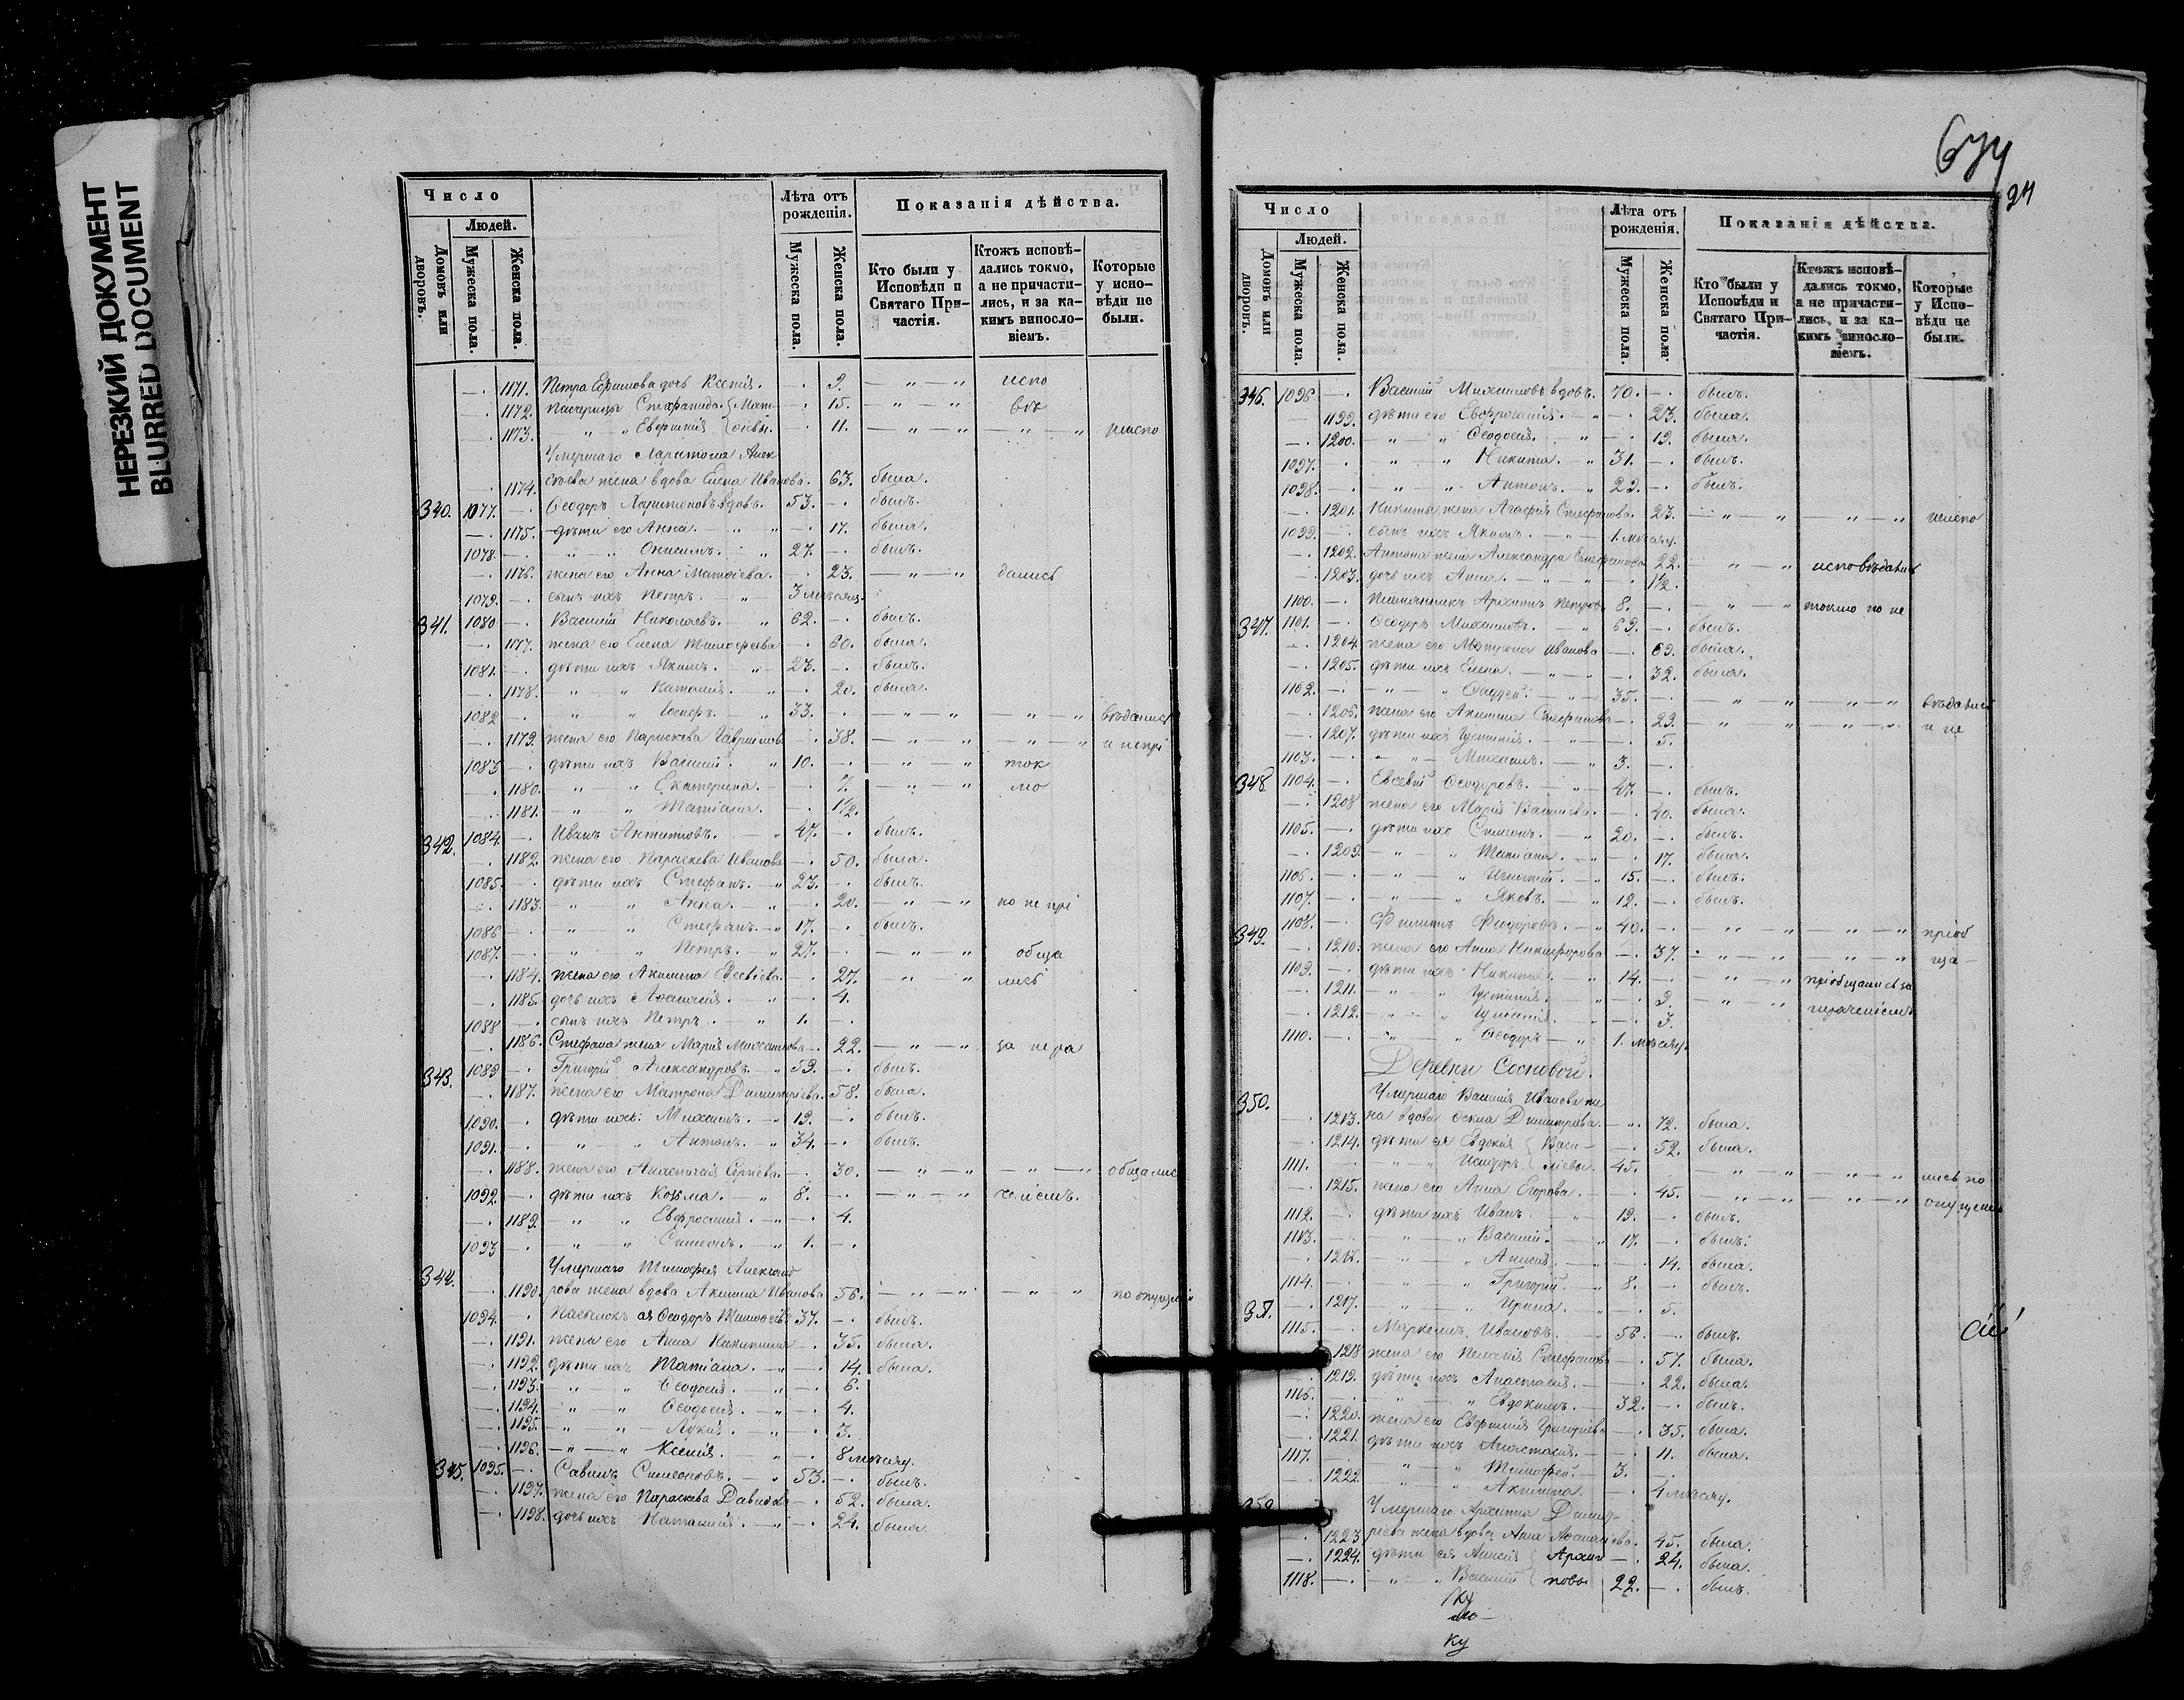 НЕРЕЗКИЙ ДОКУМЕНТ
BLURRED DOCUMENT
Число
Людей.
Домовъ или дворовъ.
Мужеска пола.
Женска пола.
Лѣта отъ рожденія.
Мужеска пола.
Женска пола.
Показанія дѣйства.
Кто были у Исповѣди и Святаго Причастія.
Ктожъ исповѣдались токмо, а не причастились, и за какимъ винословіемъ.
Которые у исповѣди не были.
—. 1171. Петра Ефимова дочь Ксенія. —. 9. — „ — „ испо
—. 1172. Стефанида. Мат- —. 15. — „ — „ вѣ
—. 1173. „ „ Евфимія —. 11. — „ — „ — „ „ неиспо
Умершаго Харитона Алек
—. 1174. сѣева жена вдова Елена Иванова. 63. была.
340. 1077. —. Ѳеодоръ Харитоновъ вдовъ. 53. —. былъ.
—. 1175. дѣти его Анна. „ „ —. 17. была.
1078. —. „ „ Онисимъ. „ 27. —. былъ.
—. 1176. жена его Анна Матѳіева. —. 23. — „ — „ дались
1079. —. сынъ ихъ Петръ. — „ 3 мѣсяц.
341. 1080 —. Василій Николаевъ. „ 62. —. былъ.
—. 1177. жена его Елена Тимофеева —. 60. была.
1081. —. дѣти ихъ Якимъ. „ 23. —. былъ.
—. 1178. „ „ Наталія. „ —. 20. была.
1082 —. „ „ Іосифъ. „ 33. —. — „ „ — „ — „ вѣдались
—. 1179. жена его Параскева Гаврилова —. 38. — „ „ — „ — „ и непрі
1083 —. дѣти ихъ Василій. „ 10. —. — „ — „ ток
—. 1180. „ „ Екатерина. —. 7. — „ — „ мо
—. 1181. „ „ Татіана. —. 1½.
342. 1084. —. Иванъ Антиповъ. — „ 47. —. былъ.
—. 1182. жена его Параскева Иванова —. 50. была.
1085. —. дѣти ихъ Стефанъ. — „ 23. —. былъ.
—. 1183. „ „ Анна. — „ —. 20. — „ — „ но не прі
1086 —. „ „ Стефанъ. — „ 17. —. былъ.
1087. —. „ „ Петръ. — „ 27. —. — „ — „ обща
—. 1184. жена его Акилина Евсевіева. —. 27. „ „ лись
—. 1185. дочь ихъ Анастасія. — „ —. 4.
1088 —. сынъ ихъ Петръ. — „ 1. —.
—. 1186. Стефана жена Марія Михаилова —. 22. — „ — „ за нера
343. 1089 —. Григорій Александровъ. „ 59. —. былъ.
—. 1187. жена его Матрона Димитріева. 58. была.
1090. —. дѣти ихъ: Михаилъ. — „ 19. —. былъ.
1091. —. „ „ Антонъ. — „ 34. —. былъ.
—. 1188. жена его Анастасія Сергіева. —. 30. — „ — „ — „ — „ общались
1092. —. дѣти ихъ Козьма. — „ 8. —. — „ — „ ченіемъ.
—. 1189. — „ „ Евфросинія. — „ —. 4.
1093 —. — „ „ Симеонъ. — „ 1. —.
344. Умершаго Тимофея Александ
—. 1190. рова жена вдова Акилина Иванова 56. — „ — „ — „ „ по опущеню
1094. —. Пасынокъ ея Ѳеодоръ Тимофеевъ 37. —. былъ.
—. 1191. жена его Анна Никитина —. 35. была.
—. 1192. дѣти ихъ Татіана. — „ —. 14. была.
—. 1193. — „ „ Ѳеодосія. — „ —. 6.
—. 1194. „ „ Ѳеодосія. — „ —. 4.
—. 1195. „ „ Лукія. — „ —. 3.
—. 1196. — „ — „ Ксенія. „ —. 8 мѣсяц.
345. 1095. —. Савинъ Симеоновъ. — „ 53. —. былъ.
—. 1197. жена его Параскева Давидова —. 52. была.
—. 1198. дочь ихъ Наталія. — „ —. 24. была.
644
24
Число
Людей.
Домовъ или дворовъ.
Мужеска пола
Женска пола.
Лѣта отъ рожденія.
Мужеска пола.
Женска пола
Показанія дѣйства.
Кто были у Исповѣди и Святаго Причастія.
Ктожъ исповѣдались токмо, а не причастились, и за какимъ винословіемъ.
Которые у Исповѣди не были.
346. 1096. —. Василій Михаиловъ вдовъ. 70. —. былъ.
— 1199. дѣти его Евфросинія. — „ —. 23. была.
—. 1200. „ „ Ѳеодосія. „ —. 19. была.
1097. —. „ „ Никита. — „ 31. —. былъ.
1098. —. — „ „ Антонъ. „ 29. —. былъ.
—. 1201. Никиты жена Агафія Стефанова. 23. — „ — „ „ — „ неиспо
1099. —. сынъ ихъ Якимъ. — „ — 1. мѣсяц.
—. 1202. Антона жена Александра Стефанова 22. „ — „ исповѣдались
—. 1203. дочь ихъ Анна. — „ — „ —. 1½.
1100. —. Племянникъ Архипъ Петровъ 8. —. — „ — „ токмо но не
347. 1101. —. Ѳеодоръ Михаиловъ. — „ 69. —. былъ.
—. 1204. жена его Матрона Иванова —. 69. была.
—. 1205. дѣти ихъ Елена. — „ — „ —. 32. была.
1102. —. — „ — „ Фаддей. — „ — 35. —. — „ — „ „ — „ вѣдались
—. 1206. жена его Акилина Стефанова —. 29. — „ „ „ — „ и не
—. 1207. дѣти ихъ Іустинія. — „ —. 5.
1103. —. — „ — Михаилъ. — „ 3. —.
348. 1104. —. Евсевій Ѳеодоровъ. — „ — 47. —. былъ.
—. 1208 жена его Марія Васильева. —. 40. была.
1105. —. дѣти ихъ Симеонъ. — „ 20. —. былъ.
—. 1209. — „ — „ Татіана. — „ —. 17. была.
1106. —. — „ — „ Игнатій. — „ 15. —. былъ.
1107. —. — „ — „ Яковъ. — „ 12. —. былъ.
349. 1108. —. Филиппъ Ѳеодоровъ. — „ 40. —. — „ — „ — „ — „ пріоб
—. 1210. жена его Анна Никифорова —. 37. — „ — „ — „ — „ ща-
1109. —. дѣти ихъ Никита. — „ 14. —. — „ — „ пріобщались за
—. 1211. — „ „ Іустинія. „ —. 9. — „ — „ нераченіемъ
—. 1212. — „ — „ „ —. 3.
1110. —. — „ — „ Ѳеодоръ — „ 1. мѣсяц.
Деревни Сосновой.
350. Умершаго Василія Иванова же
—. 1213. на вдова Ѳекла Димитріева. — „ 72. была.
—. 1214. дѣти ея Евдокія Васи- —. 52. была.
1111. —. — „ — „ Исидоръ. льевы. 45. —. — „ — „ „ — „ лись по
—. 1215. жена его Анна Егорова. —. 45. — „ — „ — „ — „ опущенію
1112. —. дѣти ихъ Иванъ. — „ 19. —. былъ.
1113. —. — „ — „ Василій. — „ 17. —. былъ.
—. 1216. — „ — „ Анисія. — „ —. 14. была.
1114. —. — „ — „ Григорій. „ 8. —. былъ.
—. 1217. „ — „ Ирина. „ —. 5.
351. 1115. —. Маркеллъ Ивановъ. „ 56. —. былъ.
1218 жена его Пелагія Стефанова —. 57. была.
—. 1219. дѣти ихъ Анастасія. — —. 22. была.
1116. —. „ — „ Евдокимъ. — „ 32. —. былъ.
—. 1220. жена его Евфимія Григоріева —. 35. была.
—. 1221. дѣти ихъ Анастасія. — —. 11. была.
1117. —. — „ — „ Тимофей. — 3. —.
—. 1222. — „ — „ Акилина. —. 4 мѣсяц.
352. Умершаго Архиппа Димит-
—. 1223 ріева жена вдова Анна Анастасіева. 45. была.
—. 1224. дѣти ея Анисія Архип —. 24. была.
1118. —. — „ „ Василій повы 22. —. былъ.
ку